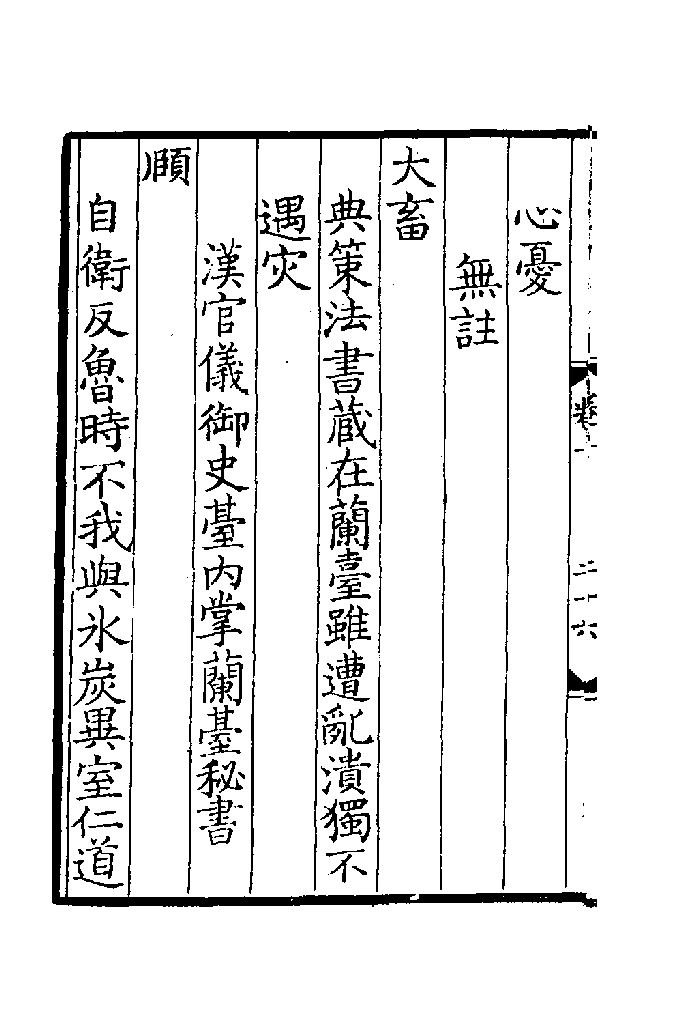 心憂
無註
大畜
典策法書蔵在蘭臺雖遭亂潰獨不
遇灾
漢官儀御史䑓内掌蘭䑓秘書
頤
自衛反魯時不我與氷炭異室仁道
卷一
二十六